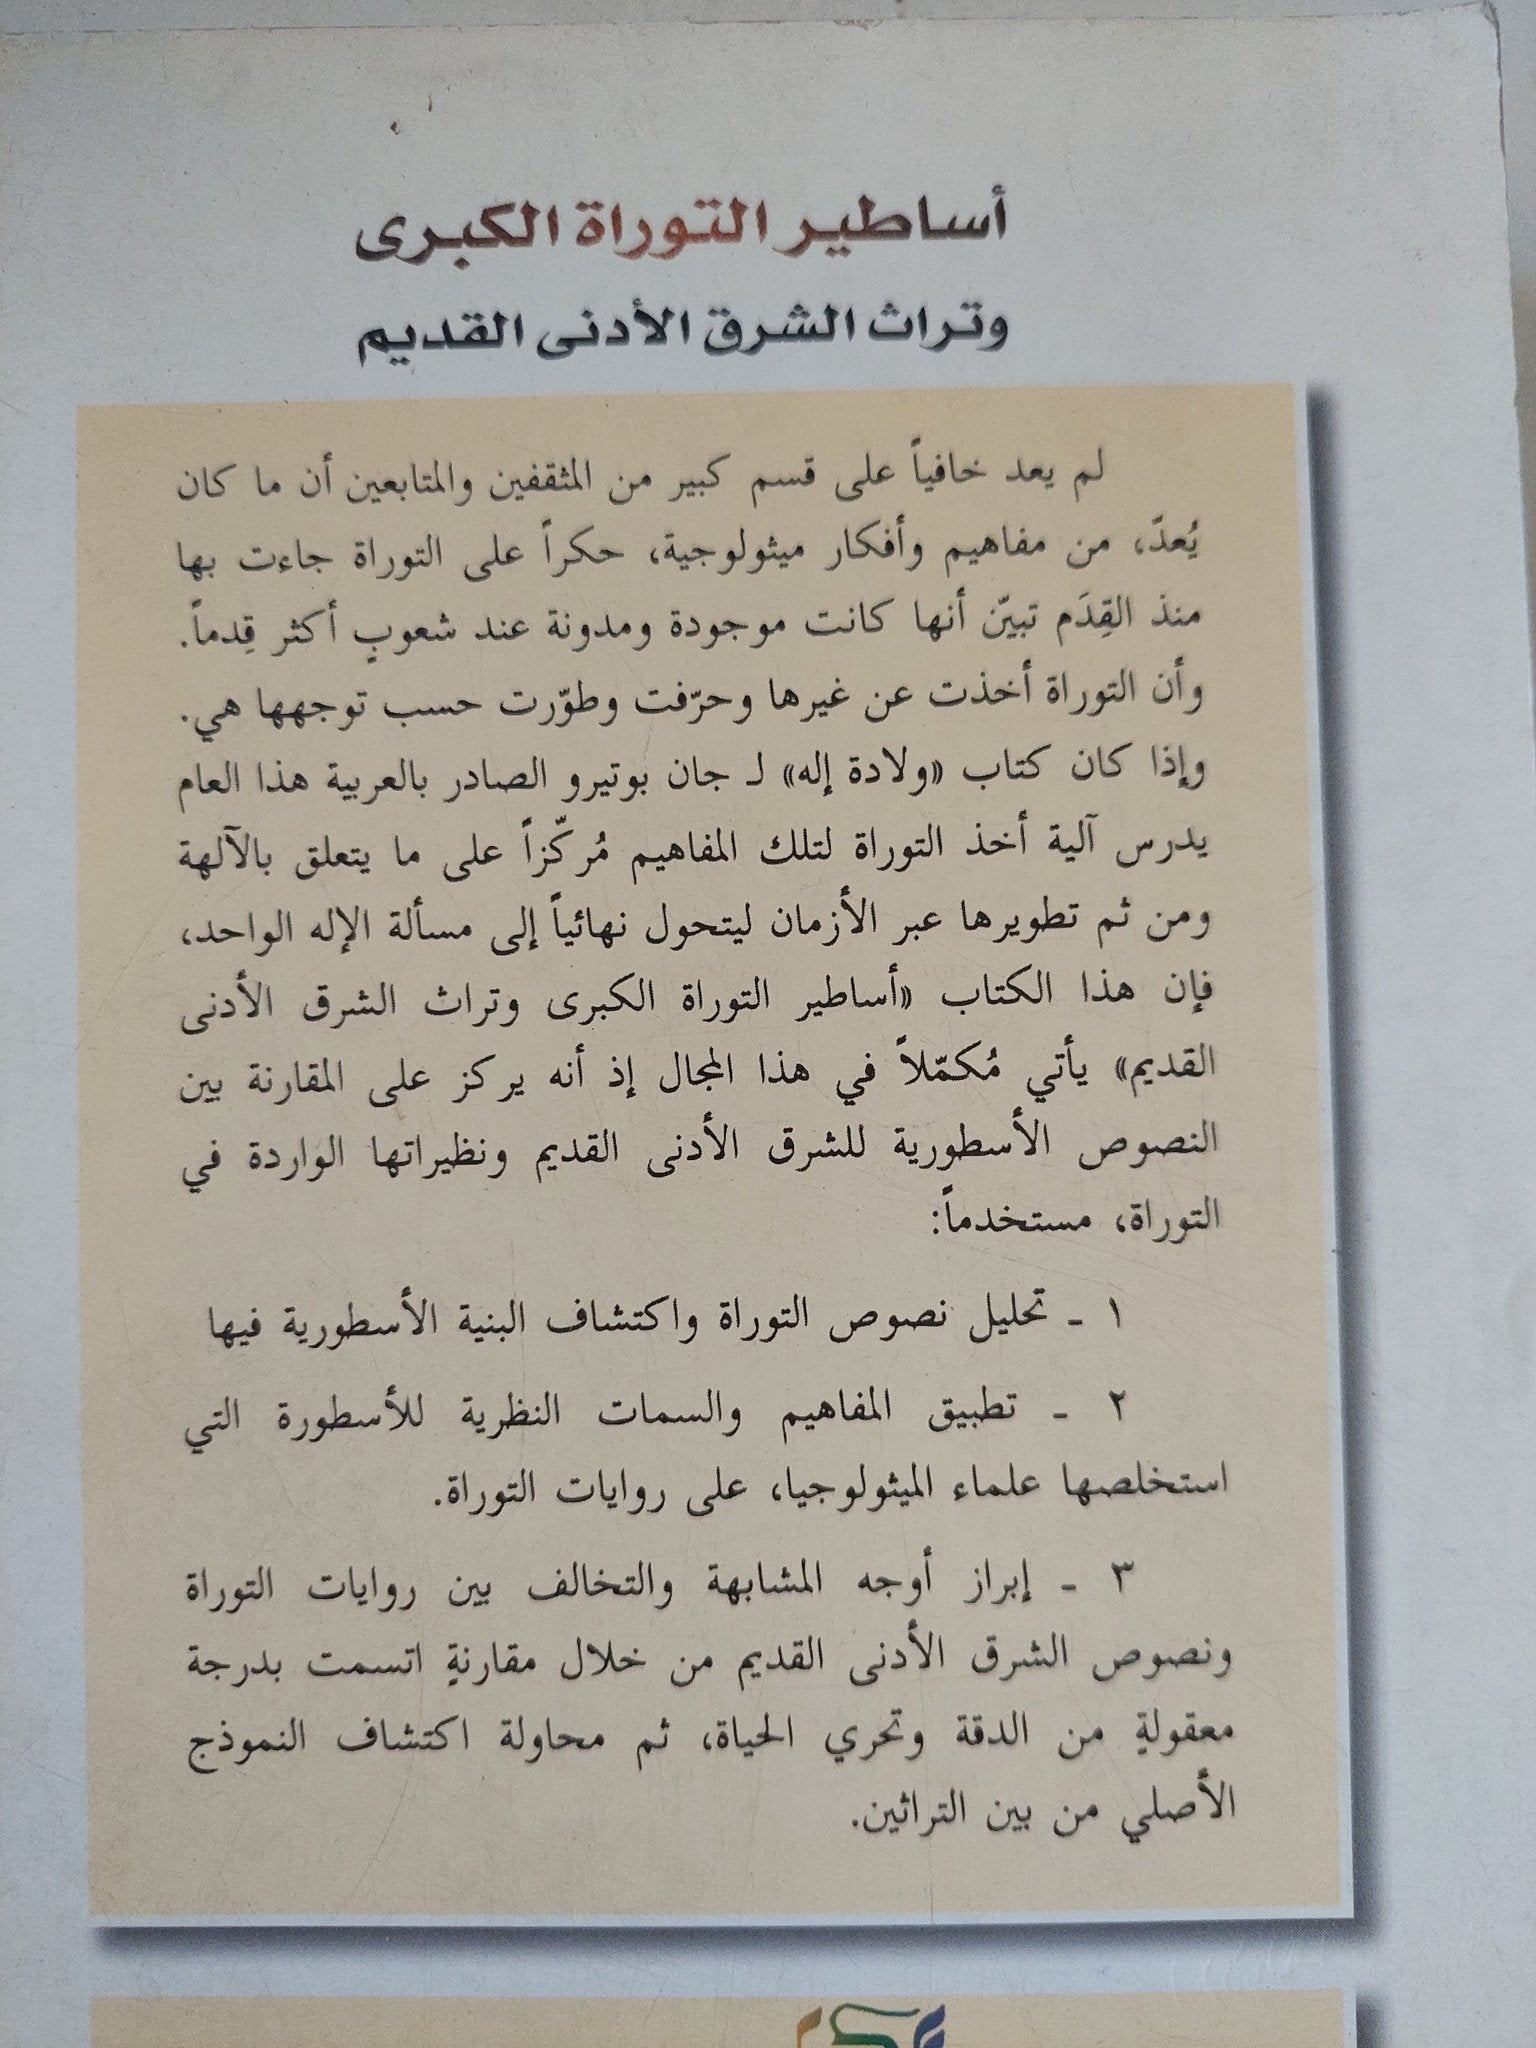 أساطير التوراة الكبرى
وتراث الشرق الأدنى القديم
لم يعد خافياً على قسم كبير من المثقفين والمتابعين أن ما كان
يُعدّ، من مفاهيم وأفكار ميثولوجية، حكراً على التوراة جاءت بها
منذ القِدَم تبيّن أنها كانت موجودة ومدونة عند شعوبٍ أكثر قِدماً.
وأن التوراة أخذت عن غيرها وحرّفت وطوّرت حسب توجهها هي.
وإذا كان كتاب «ولادة إله» لـ جان بوتيرو الصادر بالعربية هذا العام
يدرس آلية أخذ التوراة لتلك المفاهيم مُركّزاً على ما يتعلق بالآلهة
ومن ثم تطويرها عبر الأزمان ليتحول نهائياً إلى مسألة الإله الواحد،
فإن هذا الكتاب «أساطير التوراة الكبرى وتراث الشرق الأدنى
القديم» يأتي مُكمّلاً في هذا المجال إذ أنه يركز على المقارنة بين
النصوص الأسطورية للشرق الأدنى القديم ونظيراتها الواردة في
التوراة، مستخدماً:
١ ـ تحليل نصوص التوراة واكتشاف البنية الأسطورية فيها
٢ ـ تطبيق المفاهيم والسمات النظرية للأسطورة التي
استخلصها علماء الميثولوجيا، على روايات التوراة.
٣ ـ إبراز أوجه المشابهة والتخالف بين روايات التوراة
ونصوص الشرق الأدنى القديم من خلال مقارنةٍ اتسمت بدرجة
معقولةٍ من الدقة وتحري الحياة، ثم محاولة اكتشاف النموذج
الأصلي من بين التراثين.